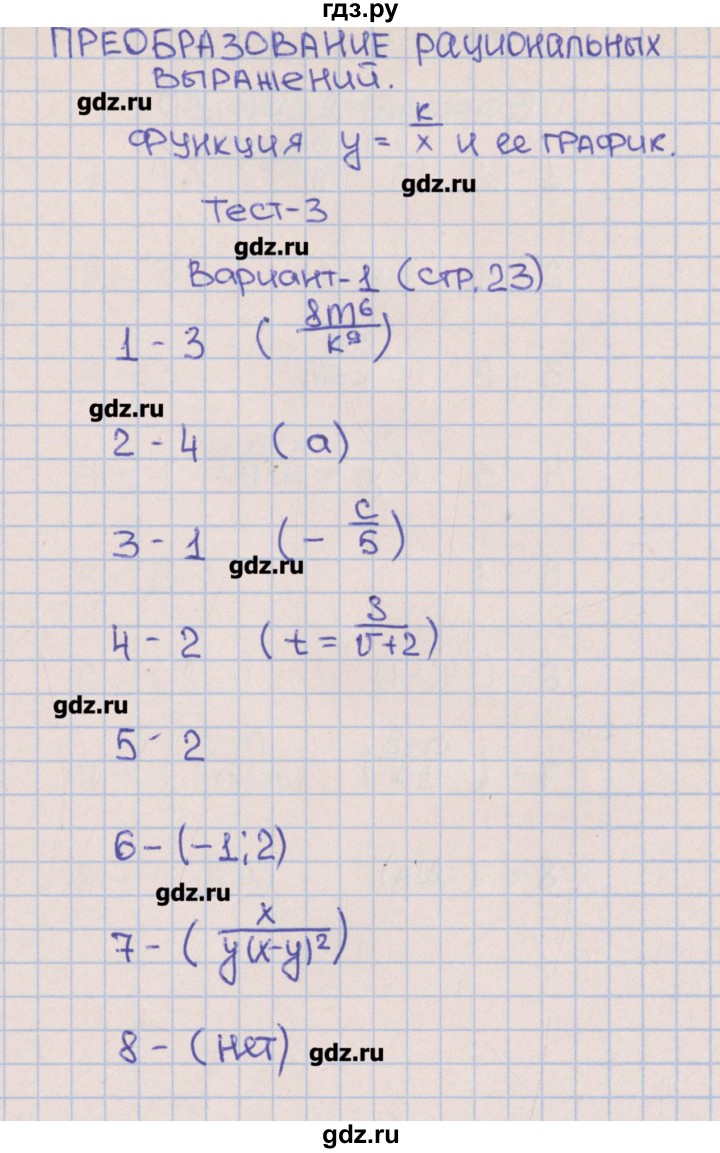 гдз.ру
ПРЕОБРАЗОВАНИЕ рациональных
выражений.
gdz.ru
Функция y = k/x и ее график.
gdz.ru
Тест-3
gdz.ru
Вариант-1 (стр. 23)
1 - 3 (8m⁶/k⁹)
gdz.ru
2 - 4 (a)
3 - 1 (- c/5)
gdz.ru
4 - 2 (t = S/v+2)
gdz.ru
5 - 2
6 - (-1; 2)
gdz.ru
7 - (x/y(x-y)²)
8 - (нет)
gdz.ru
gdz.ru